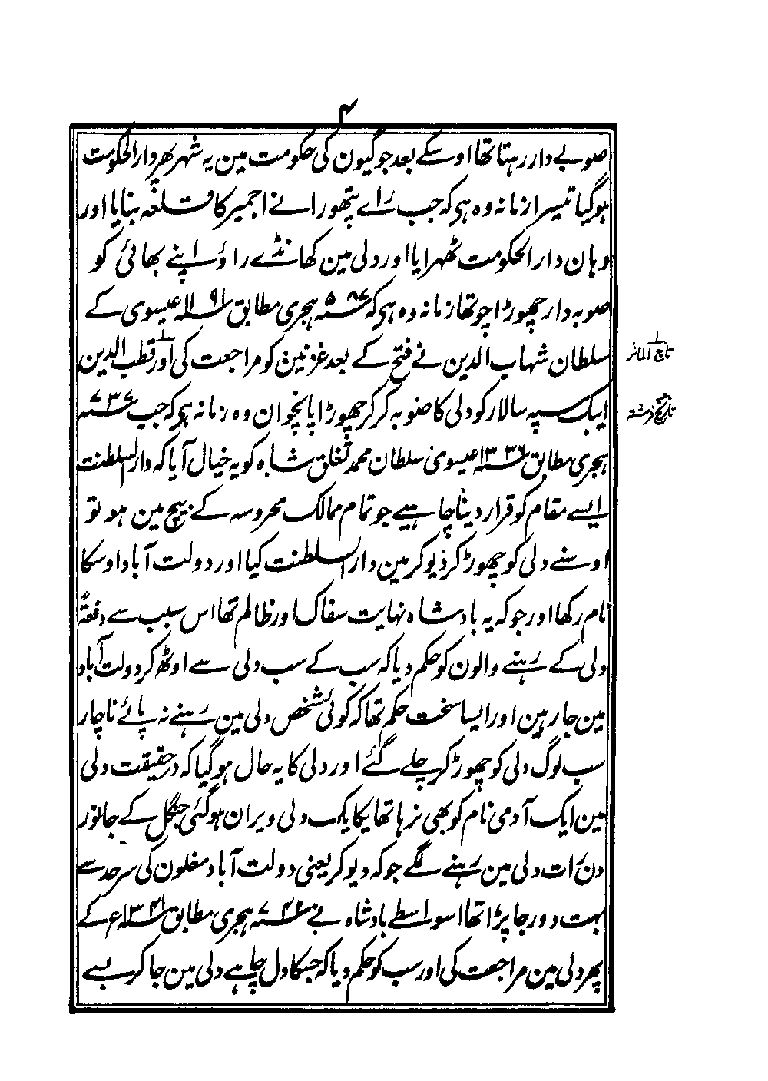 ۴
صوبے دار رہتا تھا اوسکے بعد جوگیون کی حکومت مین یہ شہر پھر دار الحکومت
ہوگیا تیسرا زمانہ وہ ہی کہ جب رائے پتھورا نے اجمیر کا قلعہ بنایا اور
وہان دار الحکومت ٹھہرایا اور دلی مین کھانڈے راؤ اپنے بھائی کو
صوبہ دار چھوڑا چوتھا زمانہ وہ ہی کہ ۵۸۷ ہجری مطابق ۱۱۹۱ عیسوی کے
سلطان شہاب الدین نے فتح کے بعد غزنین کو مراجعت کی اور قطب الدین
تاج المآثر
ایبک سپہ سالار کو دلی کا صوبہ کرکر چھوڑا پانچوان وہ زمانہ ہی کہ جب ۷۳۷
تاریخ فرشتہ
ہجری مطابق ۱۳۳۶ عیسوی سلطان محمد تغلق شاہ کو یہ خیال آیا کہ دار السلطنت
ایسے مقام کو قرار دینا چاہیے جو تمام ممالک محروسہ کے بیچ مین ہو تو
اوسنے دلی کو چھوڑ کر دیوکر مین دار السلطنت کیا اور دولت آباد اوسکا
نام رکھا اور جو کہ یہ بادشاہ نہایت سفاک اور ظالم تھا اس سبب سے دفعۃً
دلی کے رہنے والون کو حکم دیا کہ سب کے سب دلی سے اوٹھ کر دولت آباد
مین جا رہین اور ایسا سخت حکم تھا کہ کوئی شخص دلی مین رہنے نہ پائے ناچار
سب لوگ دلی کو چھوڑ کر چلے گئے اور دلی کا یہ حال ہوگیا کہ درحقیقت دلی
مین ایک آدمی نام کو بھی نرہا تھا یکایک دلی ویران ہوگئی جنگل کے جانور
دن رات دلی مین رہنے لگے جو کہ دیوکر یعنی دولت آباد مغلون کی سرحد سے
بہت دور جا پڑا تھا اسواسطے بادشاہ نے ۷۴۲ ہجری مطابق ۱۳۴۱ع کے
پھر دلی مین مراجعت کی اور سب کو حکم دیا کہ جسکا دل چاہے دلی مین جا کر بسے